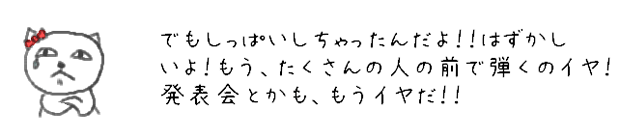 でもしっぱいしちゃったんだよ!!はずかし
いよ!もう、たくさんの人の前で弾くのイヤ!
発表会とかも、もうイヤだ!!